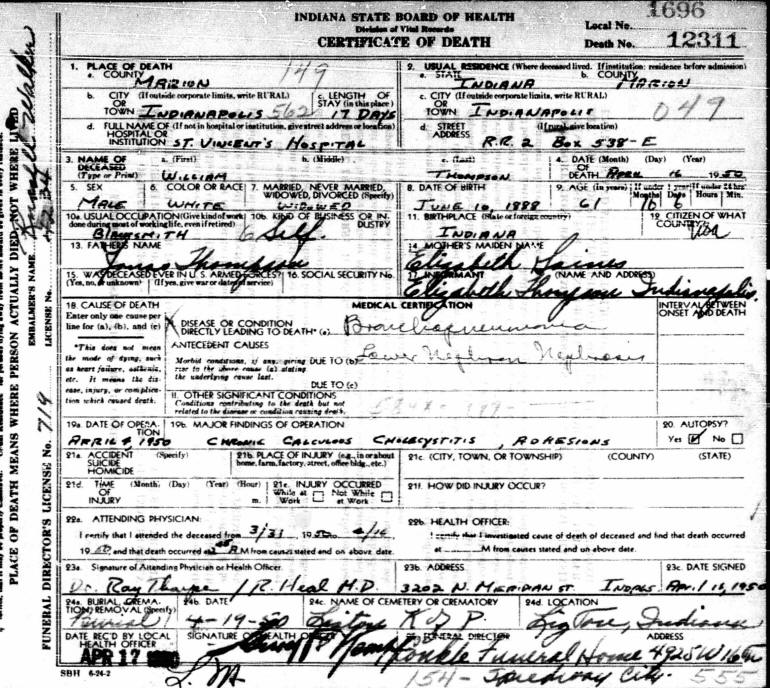 1696
INDIANA STATE BOARD OF HEALTH
Division of Vital Records
CERTIFICATE OF DEATH
Local No.
Death No. 12311
1. PLACE OF DEATH
a. COUNTY MARION 149
2. USUAL RESIDENCE (Where deceased lived. If institution: residence before admission)
a. STATE INDIANA b. COUNTY MARION
b. CITY (If outside corporate limits, write RURAL) OR TOWN INDIANAPOLIS 562
c. LENGTH OF STAY (in this place) 17 DAYS
c. CITY (If outside corporate limits, write RURAL) OR TOWN INDIANAPOLIS 049
d. FULL NAME OF (If not in hospital or institution, give street address or location) HOSPITAL OR INSTITUTION ST. VINCENT'S HOSPITAL
d. STREET (If rural, give location) ADDRESS R.R. 2 BOX 538-E
3. NAME OF DECEASED (Type or Print) a. (First) WILLIAM b. (Middle) c. (Last) THOMPSON
4. DATE (Month) (Day) (Year) OF DEATH APRIL 16 1950
5. SEX MALE
6. COLOR OR RACE WHITE
7. MARRIED, NEVER MARRIED, WIDOWED, DIVORCED (Specify) WIDOWED
8. DATE OF BIRTH JUNE 10, 1888
9. AGE (In years) 61 If under 1 year Months 10 Days 6 If under 24 hrs Hours Min.
10a. USUAL OCCUPATION (Give kind of work done during most of working life, even if retired) BLACKSMITH
10b. KIND OF BUSINESS OR INDUSTRY Self.
11. BIRTHPLACE (State or foreign country) INDIANA
12. CITIZEN OF WHAT COUNTRY? USA
13. FATHER'S NAME Thompson
14. MOTHER'S MAIDEN NAME Elizabeth
15. WAS DECEASED EVER IN U. S. ARMED FORCES? (Yes, no, or unknown) (If yes, give war or dates of service)
16. SOCIAL SECURITY No.
17. INFORMANT (NAME AND ADDRESS) Elizabeth Thompson Indianapolis.
18. CAUSE OF DEATH
Enter only one cause per line for (a), (b), and (c)
MEDICAL CERTIFICATION
INTERVAL BETWEEN ONSET AND DEATH
I. DISEASE OR CONDITION DIRECTLY LEADING TO DEATH* (a) Bronchopneumonia
ANTECEDENT CAUSES
*This does not mean the mode of dying, such as heart failure, asthenia, etc. It means the disease, injury, or complication which caused death.
Morbid conditions, if any, giving rise to the above cause (a) stating the underlying cause last.
DUE TO (b) Lower Nephron Nephrosis
DUE TO (c)
II. OTHER SIGNIFICANT CONDITIONS
Conditions contributing to the death but not related to the disease or condition causing death.
19a. DATE OF OPERATION APRIL 4, 1950
19b. MAJOR FINDINGS OF OPERATION CHRONIC CALCULOUS CHOLECYSTITIS, ADHESIONS
20. AUTOPSY? Yes ☑ No ☐
21a. ACCIDENT SUICIDE HOMICIDE (Specify)
21b. PLACE OF INJURY (e.g., in or about home, farm, factory, street, office bldg., etc.)
21c. (CITY, TOWN, OR TOWNSHIP) (COUNTY) (STATE)
21d. TIME OF INJURY (Month) (Day) (Year) (Hour) m.
21e. INJURY OCCURRED While at Work ☐ Not While at Work ☐
21f. HOW DID INJURY OCCUR?
22a. ATTENDING PHYSICIAN:
I certify that I attended the deceased from 3/31 1950 4/16 1950 and that death occurred at M from causes stated and on above date.
22b. HEALTH OFFICER:
I certify that I investigated cause of death of deceased and find that death occurred at M from causes stated and on above date.
23a. Signature of Attending Physician or Health Officer. Dr. Ray Tharpe / R. Heal M.D.
23b. ADDRESS 3202 N. MERIDIAN ST INDPLS
23c. DATE SIGNED April 16, 1950
24a. BURIAL, CREMATION, REMOVAL (Specify) Burial
24b. DATE 4-19-50
24c. NAME OF CEMETERY OR CREMATORY K of P
24d. LOCATION Indiana
DATE REC'D BY LOCAL HEALTH OFFICER APR 17
SIGNATURE OF HEALTH OFFICER
25. FUNERAL DIRECTOR ADDRESS
Conkle Funeral Home 4925 W 16th
154- Speedway City. 555
SBH 6-24-2
PLACE OF DEATH MEANS WHERE PERSON ACTUALLY DIED, NOT WHERE LIVED
EMBALMER'S NAME Walker
LICENSE No. 4234
FUNERAL DIRECTOR'S LICENSE No. 719